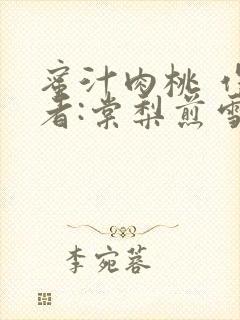 蜜汁肉桃 
者:棠梨煎雪
李宛蓉